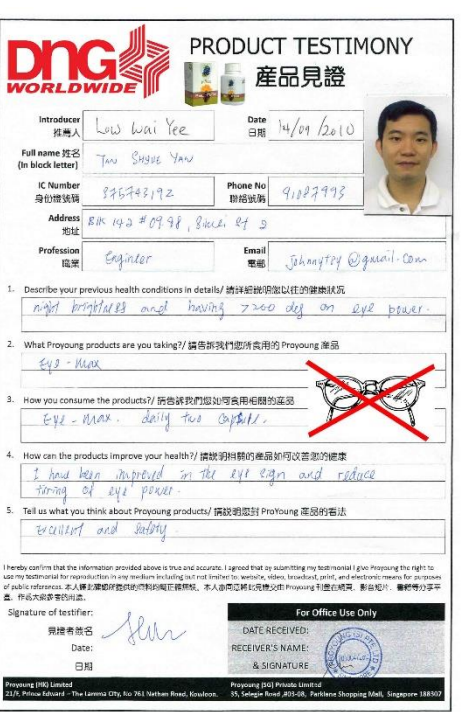 DNG
WORLDWIDE
PRODUCT TESTIMONY
產品見證
Introducer
推薦人
Low Wai Yee
Date
日期
14/09/2010
Full name 姓名
(In block letter)
TAN SHYUE YAN
IC Number
身份證號碼
Phone No
聯絡號碼
91087993
Address
地址
Blk 142 #09.98,
St 2
Profession
職業
Enginter
Email
電郵
@gmail.com
1. Describe your previous health conditions in details/ 請詳細說明您以往的健康狀況
night brightness and having >200 deg on eye power.
2. What Proyoung products are you taking?/ 請告訴我們您所食用的 Proyoung 產品
Eye-Max
3. How you consume the products?/ 請告訴我們您如何食用相關的產品
Eye-Max. daily two
4. How can the products improve your health?/ 請說明相關的產品如何改善您的健康
I have been improved in the eye sign and reduce
tiring of eye power.
5. Tell us what you think about Proyoung products/ 請說明您對 ProYoung 產品的看法
Excellent and safety.
I hereby confirm that the information provided above is true and accurate. I agreed that by submitting my testimonial I give Proyoung the right to
use my testimonial for reproduction in any medium including but not limited to: website, video, broadcast, print, and electronic means for purposes
of public references.
Signature of testifier:
見證者簽名
Date:
日期
For Office Use Only
DATE RECEIVED:
RECEIVER'S NAME:
& SIGNATURE
Proyoung (HK) Limited
21/F, Prince Edward - The Lamma City, No 761 Nathan Road, Kowloon.
Proyoung (SG) Private Limited
35, Selegie Road ,#03-08, Parklane Shopping Mall, Singapore 188307